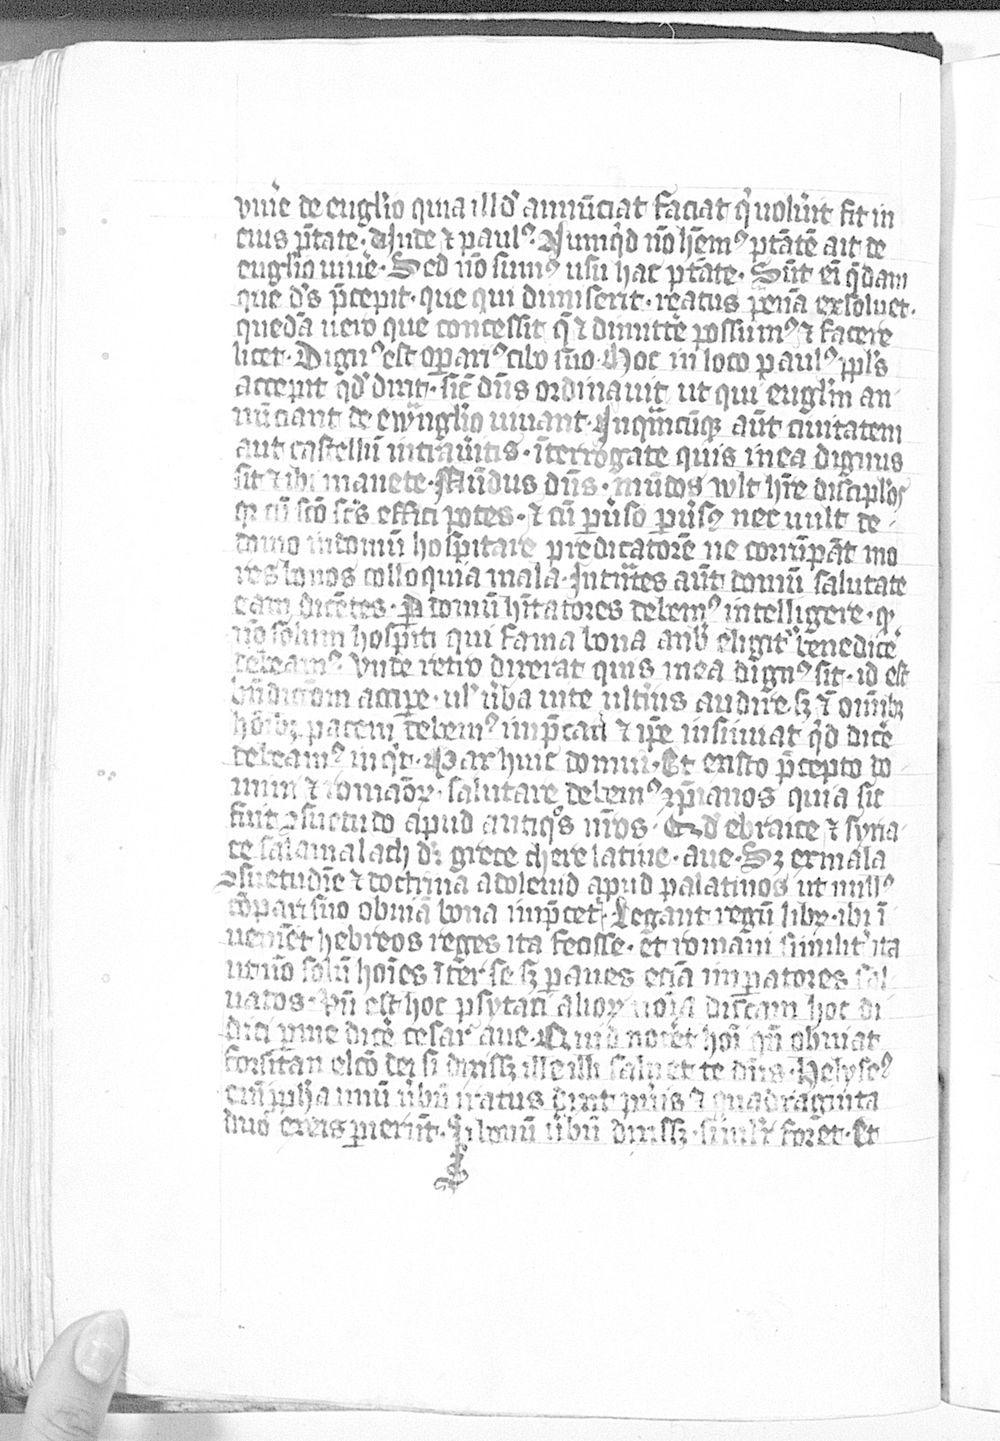 viue᷒ de eug̅lio quia illd᷒ annu̅ciat faciat q᷒ uolu᷒it fit in
eius p̅tate᷒. Vnde ⁊ paul᷒. Nunq᷒d no̅ he̅m᷒ pt̅ate̅ ait de
eug̅lio uiue᷒. Sed no̅ sum᷒ usu hac pt̅ate. Su̅t ei̅ q̅dam
que d᷒s p̅cepit. que qui dimiserit. reatus pena̅ exsoluet.
queda̅ uero que concessit q̅ ⁊ dimitte̅ possum᷒ ⁊ facere
licet. Dign᷒ est operari᷒ cibo suo. Hoc in loco paul᷒ apl᷒s
accepit qd᷒ dixit. sic̅ dn̅s ordinauit ut qui eug̅lm an
nu̅ciant de ewa̅nglio uiuant. In qua̅cu̅q̨ au̅t ciuitatem
aut castellu̅ intrau᷒itis. i̅terrogate quis in ea dignus
sit ⁊ ibi manete. Mu̅dus dn̅s. mu̅dos wlt hr̅e discipl᷒os
q̨ cu̅ sc̅o sc̅s effici potes. ⁊ cu̅ pu᷒so pu᷒s᷒ nec uult de
domo in domu̅ hospitare predicatore̅ ne corru̅pa̅t mo
res bonos colloquia mala. Intra̅tes au̅t domu̅ salutate
eam dice̅tes. P domu̅ hi̅tatores debem᷒ intelligere. q̨
no̅ solum hospiti qui fama bona an᷒ elig̅it᷒ benedice᷒
debeam᷒. Vnde retro dixerat quis in ea dign᷒ sit. id est
bn̅dictio̅m accipe᷒. ul᷒ u᷒ba uite ult᷒ius audire. sꝫ ⁊ omi̅bꝫ
ho̅ibꝫ pacem debem᷒ imp̅cari ⁊ ipe̅ insinuat q᷒d dice᷒
debeam᷒ inq᷒t. Pax huic domui. Et ex isto p̅cepto do
mini ⁊ romaoꝝ. salutare debem᷒ xp̅ianos quia sic
fuit ɔsuetudo apud antiq᷒os nr̅os. Et d᷒ ebraice ⁊ syria
ce salamalach d᷒ grece chere latine. aue. Sꝫ ex mala
ɔsuetudi̅e ⁊ doctrina adoleuid apud palatinos ut null᷒
co̅pari suo obuia̅ bona imp̅cet᷒. Legant regu̅ libꝝ. ibi i̅
uenie̅t hebreos reges ita fecisse. et romani similit᷒ ita
ut no̅ solu̅ hoi̅es i̅ter se sꝫ paues ecia̅ imperatores sal
uatos. Vn̅ est hoc psytaci alioꝝ uoia̅ discam hoc di
dici p me dice̅ cesar aue. Quid noce̅t hoi̅ qn̅ obuiat
forsitan elco̅ dei si dixissꝫ ille illi saluet te dn̅s. Helyse᷒
u᷒bu̅ iratus dixit pu᷒is ⁊ quadraginta
duo exeis perieru̅t. Si bonu̅ u᷒bu̅ dixissꝫ. similit᷒ fore̅t. Et